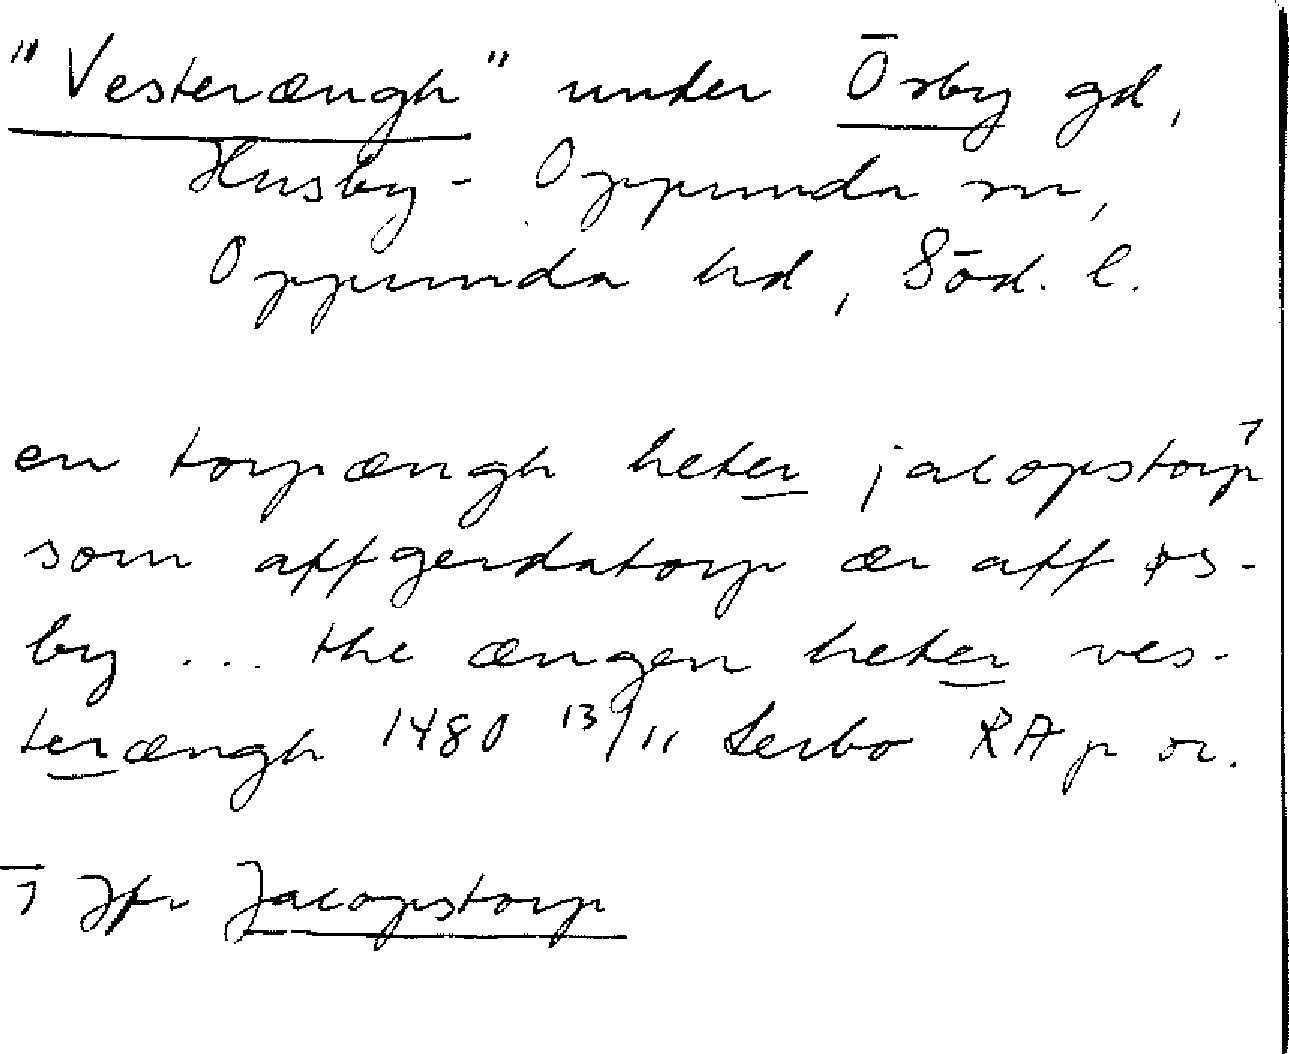 "Vesterængh" under Örby gd,
Husby-Oppunda sn,
Oppunda hd, Söd. l.
en torpængh heter jacopstorp¹
som affgerdatorp ær aff øs-
by ... the ængen heter ves-
terængh 1480 13/11 Lerbo RA p or.
1 Jfr Jacopstorp